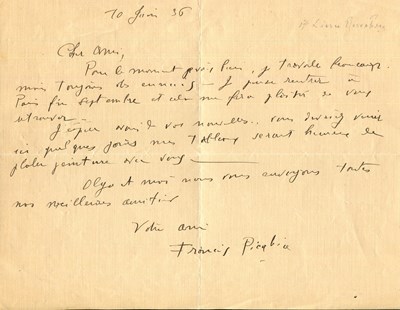 10 Juin 36
Cher ami,
Pour le moment je travaille beaucoup
mais toujours des ennuis — Je pense rentrer à
Paris fin Septembre et cela me fera plaisir de vous
retrouver.
J'espère avoir de vos nouvelles.. vous devriez venir
ici quelques jours mes tableaux seront heureux de
parler peinture avec vous
Olga et moi nous vous envoyons toutes
nos meilleures amitiés
Votre ami
Francis Picabia